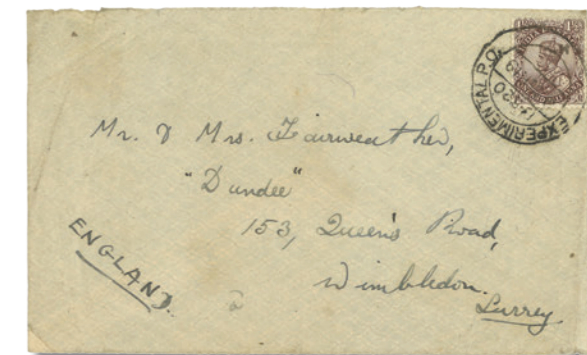 EXPERIMENTAL P.O.
Mr. & Mrs. Fairweather,
"Dundee"
153, Queen's Road,
Wimbledon.
Surrey.
ENGLAND.